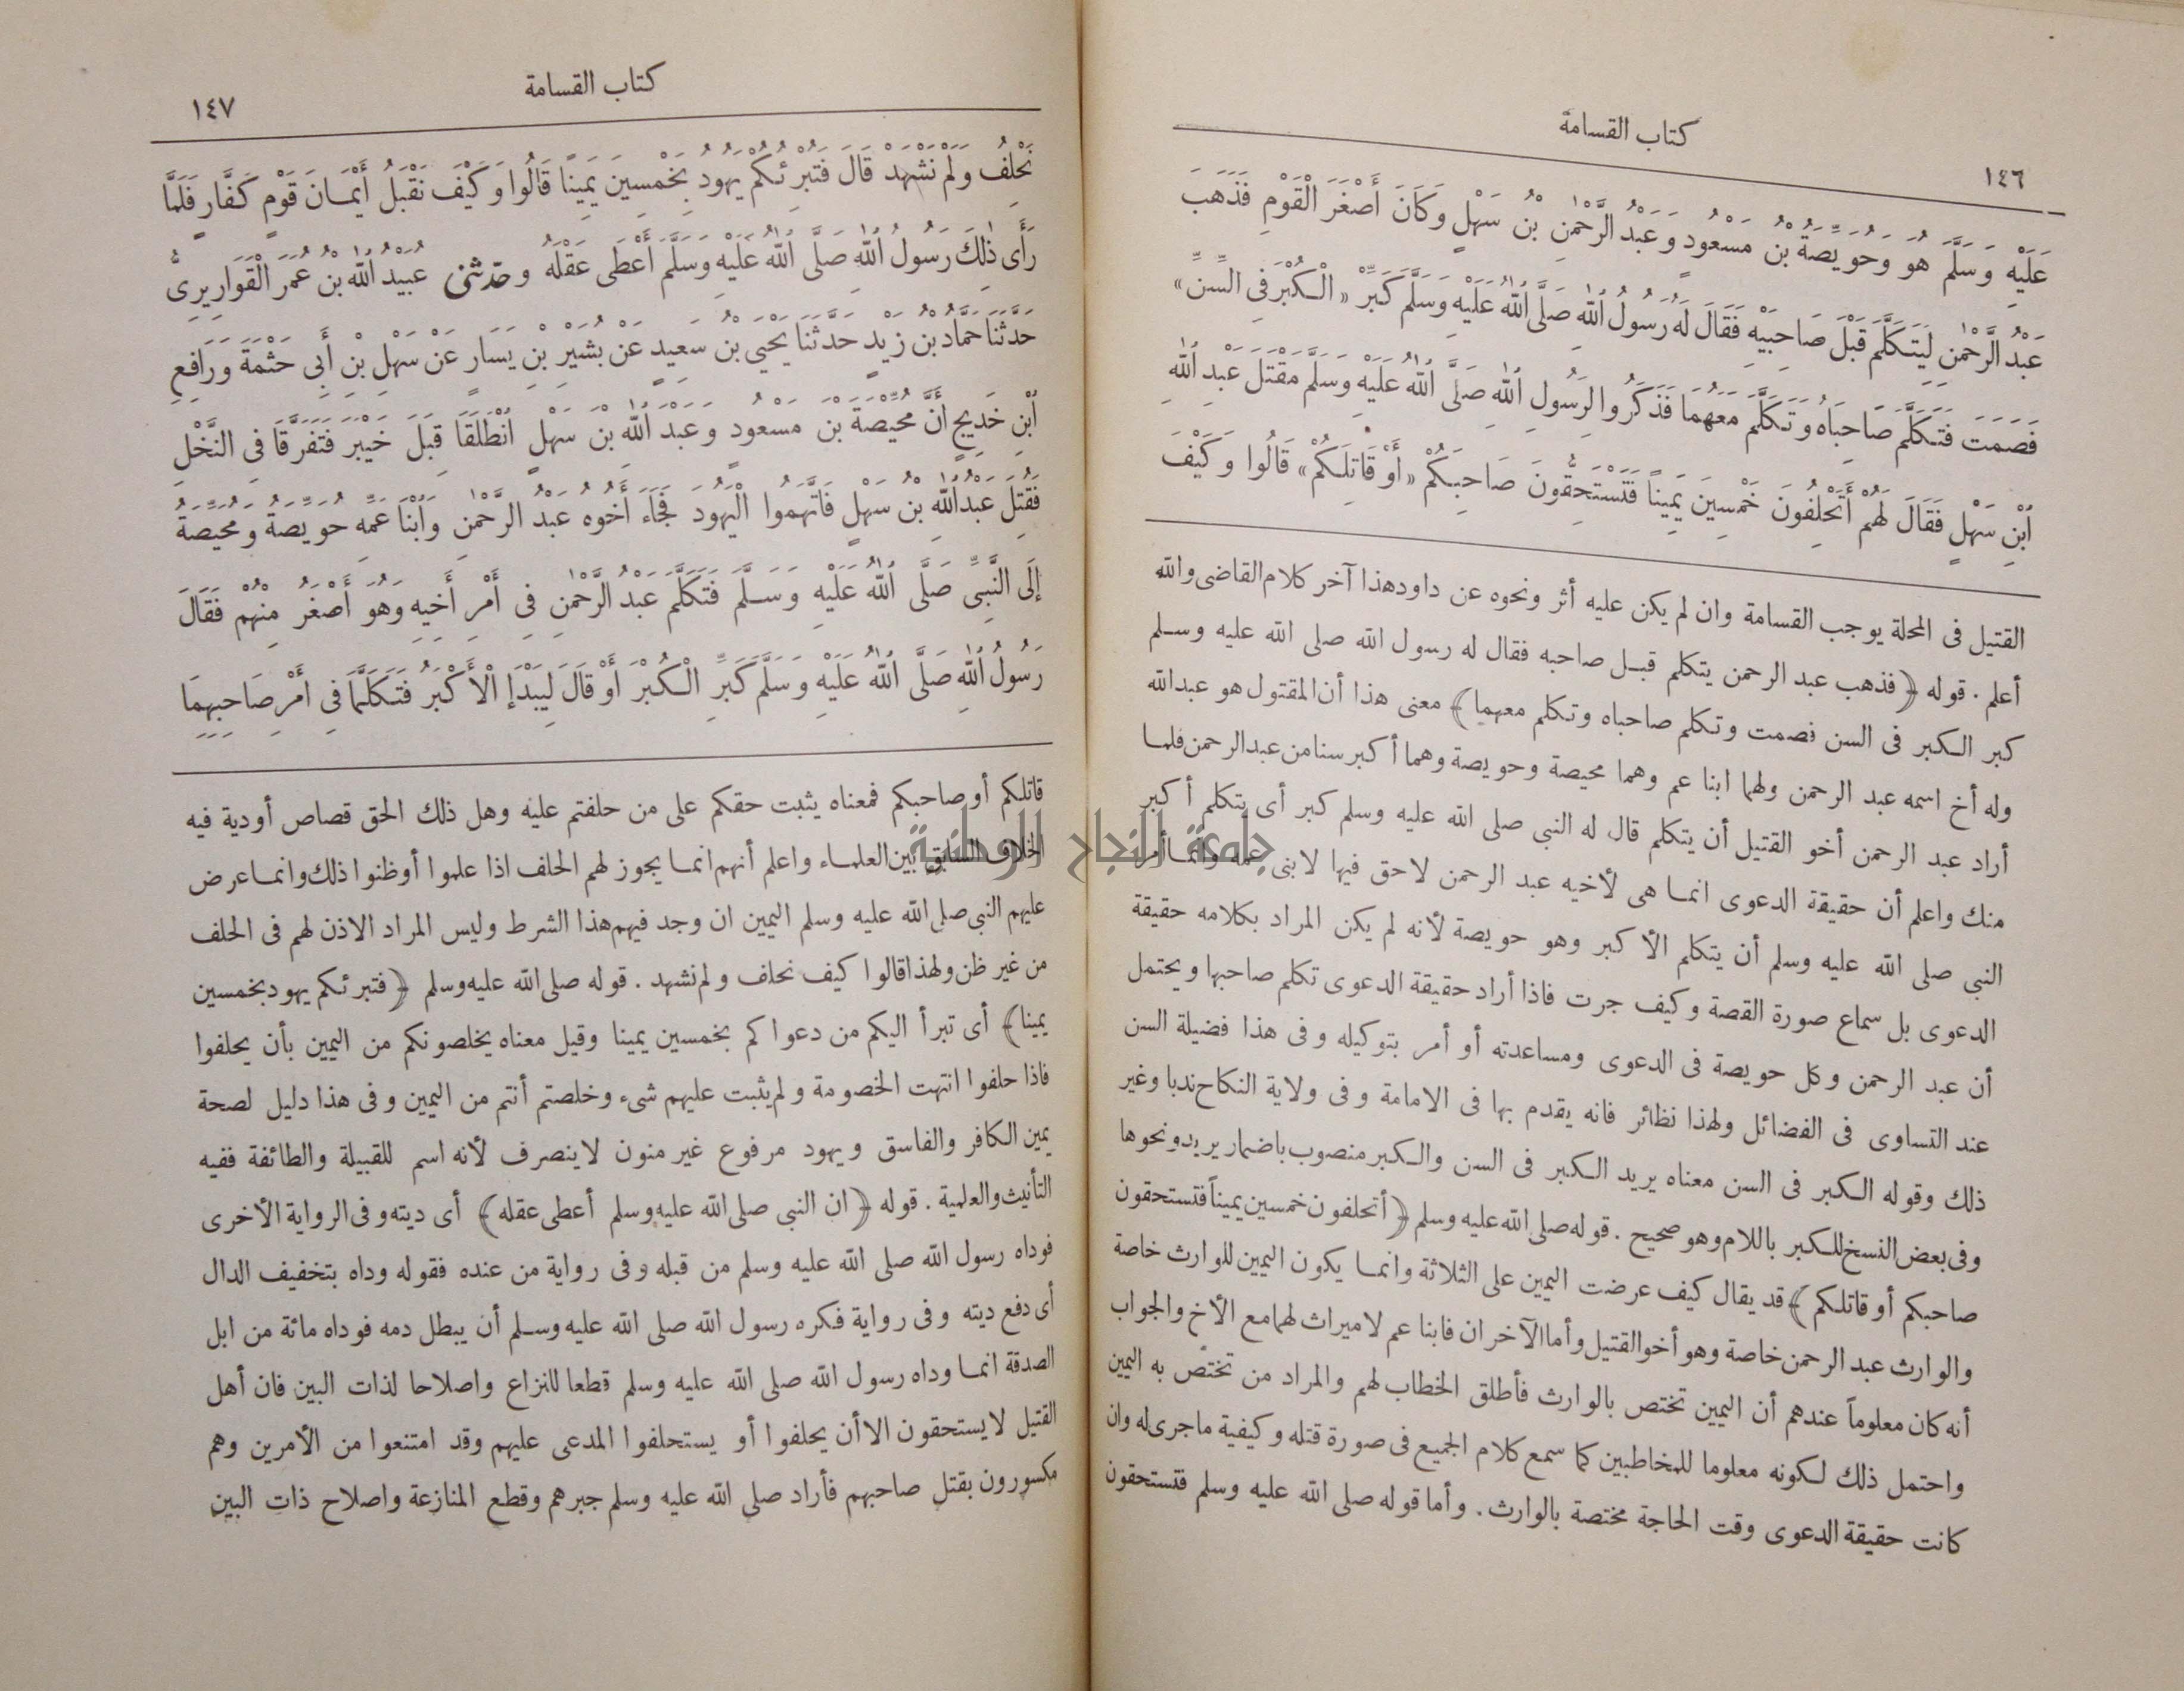 كتاب القسامة
١٤٦
عَلَيْهِ وَسَلَّمَ هُوَ وَحُوَيِّصَةُ بْنُ مَسْعُودٍ وَعَبْدُ الرَّحْمٰنِ بْنُ سَهْلٍ وَكَانَ أَصْغَرَ الْقَوْمِ فَذَهَبَ
عَبْدُ الرَّحْمٰنِ لِيَتَكَلَّمَ قَبْلَ صَاحِبَيْهِ فَقَالَ لَهُ رَسُولُ اللّٰهِ صَلَّى اللّٰهُ عَلَيْهِ وَسَلَّمَ كَبِّرْ «الْكُبْرَ فِى السِّنِّ»
فَصَمَتَ فَتَكَلَّمَ صَاحِبَاهُ وَتَكَلَّمَ مَعَهُمَا فَذَكَرُوا لِرَسُولِ اللّٰهِ صَلَّى اللّٰهُ عَلَيْهِ وَسَلَّمَ مَقْتَلَ عَبْدِ اللّٰهِ
ابْنِ سَهْلٍ فَقَالَ لَهُمْ أَتَحْلِفُونَ خَمْسِينَ يَمِينًا فَتَسْتَحِقُّونَ صَاحِبَكُمْ «أَوْ قَاتِلَكُمْ» قَالُوا وَكَيْفَ
القتيل فى المحلة يوجب القسامة وان لم يكن عليه أثر ونحوه عن داود هذا آخر كلام القاضى والله
أعلم . قوله ﴿فذهب عبد الرحمن يتكلم قبل صاحبه فقال له رسول الله صلى الله عليه وسلم
كبر الكبر فى السن فصمت وتكلم صاحباه وتكلم معهما﴾ معنى هذا أن المقتول هو عبد الله
وله أخ اسمه عبد الرحمن ولهما ابنا عم وهما محيصة وحويصة وهما أكبر سنا من عبد الرحمن فلما
أراد عبد الرحمن أخو القتيل أن يتكلم قال له النبى صلى الله عليه وسلم كبر أى يتكلم أكبر
منك واعلم أن حقيقة الدعوى انما هى لأخيه عبد الرحمن لا حق فيها لابنى عمه وانما أمر
النبى صلى الله عليه وسلم أن يتكلم الأكبر وهو حويصة لأنه لم يكن المراد بكلامه حقيقة
الدعوى بل سماع صورة القصة وكيف جرت فاذا أراد حقيقة الدعوى تكلم صاحبها ويحتمل
أن عبد الرحمن وكل حويصة فى الدعوى ومساعدته أو أمر بتوكيله وفى هذا فضيلة السن
عند التساوى فى الفضائل ولهذا نظائر فانه يقدم بها فى الامامة وفى ولاية النكاح ندبا وغير
ذلك وقوله الكبر فى السن معناه يريد الكبر فى السن والكبر منصوب باضمار يريد ونحوها
وفى بعض النسخ للكبر باللام وهو صحيح . قوله صلى الله عليه وسلم ﴿أتحلفون خمسين يميناً فتستحقون
صاحبكم أو قاتلكم﴾ قد يقال كيف عرضت اليمين على الثلاثة وانما يكون اليمين للوارث خاصة
والوارث عبد الرحمن خاصة وهو أخو القتيل وأما الآخران فابنا عم لا ميراث لهما مع الأخ والجواب
أنه كان معلوماً عندهم أن اليمين تختص بالوارث فأطلق الخطاب لهم والمراد من تختص به اليمين
واحتمل ذلك لكونه معلوما للمخاطبين كما سمع كلام الجميع فى صورة قتله وكيفية ما جرى له وان
كانت حقيقة الدعوى وقت الحاجة مختصة بالوارث . وأما قوله صلى الله عليه وسلم فتستحقون
كتاب القسامة
١٤٧
نَحْلِفُ وَلَمْ نَشْهَدْ قَالَ فَتُبْرِئُكُمْ يَهُودُ بِخَمْسِينَ يَمِينًا قَالُوا وَكَيْفَ نَقْبَلُ أَيْمَانَ قَوْمٍ كُفَّارٍ فَلَمَّا
رَأَى ذٰلِكَ رَسُولُ اللّٰهِ صَلَّى اللّٰهُ عَلَيْهِ وَسَلَّمَ أَعْطَى عَقْلَهُ وحدثنى عُبَيْدُ اللّٰهِ بْنُ عُمَرَ الْقَوَارِيرِىُّ
حَدَّثَنَا حَمَّادُ بْنُ زَيْدٍ حَدَّثَنَا يَحْيَى بْنُ سَعِيدٍ عَنْ بُشَيْرِ بْنِ يَسَارٍ عَنْ سَهْلِ بْنِ أَبِى حَثْمَةَ وَرَافِعِ
ابْنِ خَدِيجٍ أَنَّ مُحَيِّصَةَ بْنَ مَسْعُودٍ وَعَبْدَ اللّٰهِ بْنَ سَهْلٍ انْطَلَقَا قِبَلَ خَيْبَرَ فَتَفَرَّقَا فِى النَّخْلِ
فَقُتِلَ عَبْدُ اللّٰهِ بْنُ سَهْلٍ فَاتَّهَمُوا الْيَهُودَ فَجَاءَ أَخُوهُ عَبْدُ الرَّحْمٰنِ وَابْنَا عَمِّهِ حُوَيِّصَةُ وَمُحَيِّصَةُ
إِلَى النَّبِىِّ صَلَّى اللّٰهُ عَلَيْهِ وَسَلَّمَ فَتَكَلَّمَ عَبْدُ الرَّحْمٰنِ فِى أَمْرِ أَخِيهِ وَهُوَ أَصْغَرُ مِنْهُمْ فَقَالَ
رَسُولُ اللّٰهِ صَلَّى اللّٰهُ عَلَيْهِ وَسَلَّمَ كَبِّرِ الْكُبْرَ أَوْ قَالَ لِيَبْدَإِ الْأَكْبَرُ فَتَكَلَّمَا فِى أَمْرِ صَاحِبِهِمَا
قاتلكم أو صاحبكم فمعناه يثبت حقكم على من حلفتم عليه وهل ذلك الحق قصاص أو دية فيه
الخلاف السابق بين العلماء واعلم أنهم انما يجوز لهم الحلف اذا علموا أو ظنوا ذلك وانما عرض
عليهم النبى صلى الله عليه وسلم اليمين ان وجد فيهم هذا الشرط وليس المراد الاذن لهم فى الحلف
من غير ظن ولهذا قالوا كيف نحلف ولم نشهد . قوله صلى الله عليه وسلم ﴿فتبرئكم يهود بخمسين
يمينا﴾ أى تبرأ اليكم من دعواكم بخمسين يمينا وقيل معناه يخلصونكم من اليمين بأن يحلفوا
فاذا حلفوا انتهت الخصومة ولم يثبت عليهم شىء وخلصتم أنتم من اليمين وفى هذا دليل لصحة
يمين الكافر والفاسق ويهود مرفوع غير منون لا ينصرف لأنه اسم للقبيلة والطائفة ففيه
التأنيث والعلمية . قوله ﴿ان النبى صلى الله عليه وسلم أعطى عقله﴾ أى ديته وفى الرواية الأخرى
فوداه رسول الله صلى الله عليه وسلم من قبله وفى رواية من عنده فقوله وداه بتخفيف الدال
أى دفع ديته وفى رواية فكره رسول الله صلى الله عليه وسلم أن يبطل دمه فوداه مائة من ابل
الصدقة انما وداه رسول الله صلى الله عليه وسلم قطعا للنزاع واصلاحا لذات البين فان أهل
القتيل لا يستحقون الا أن يحلفوا أو يستحلفوا المدعى عليهم وقد امتنعوا من الأمرين وهم
مكسورون بقتل صاحبهم فأراد صلى الله عليه وسلم جبرهم وقطع المنازعة واصلاح ذات البين
جامعة النجاح الوطنية